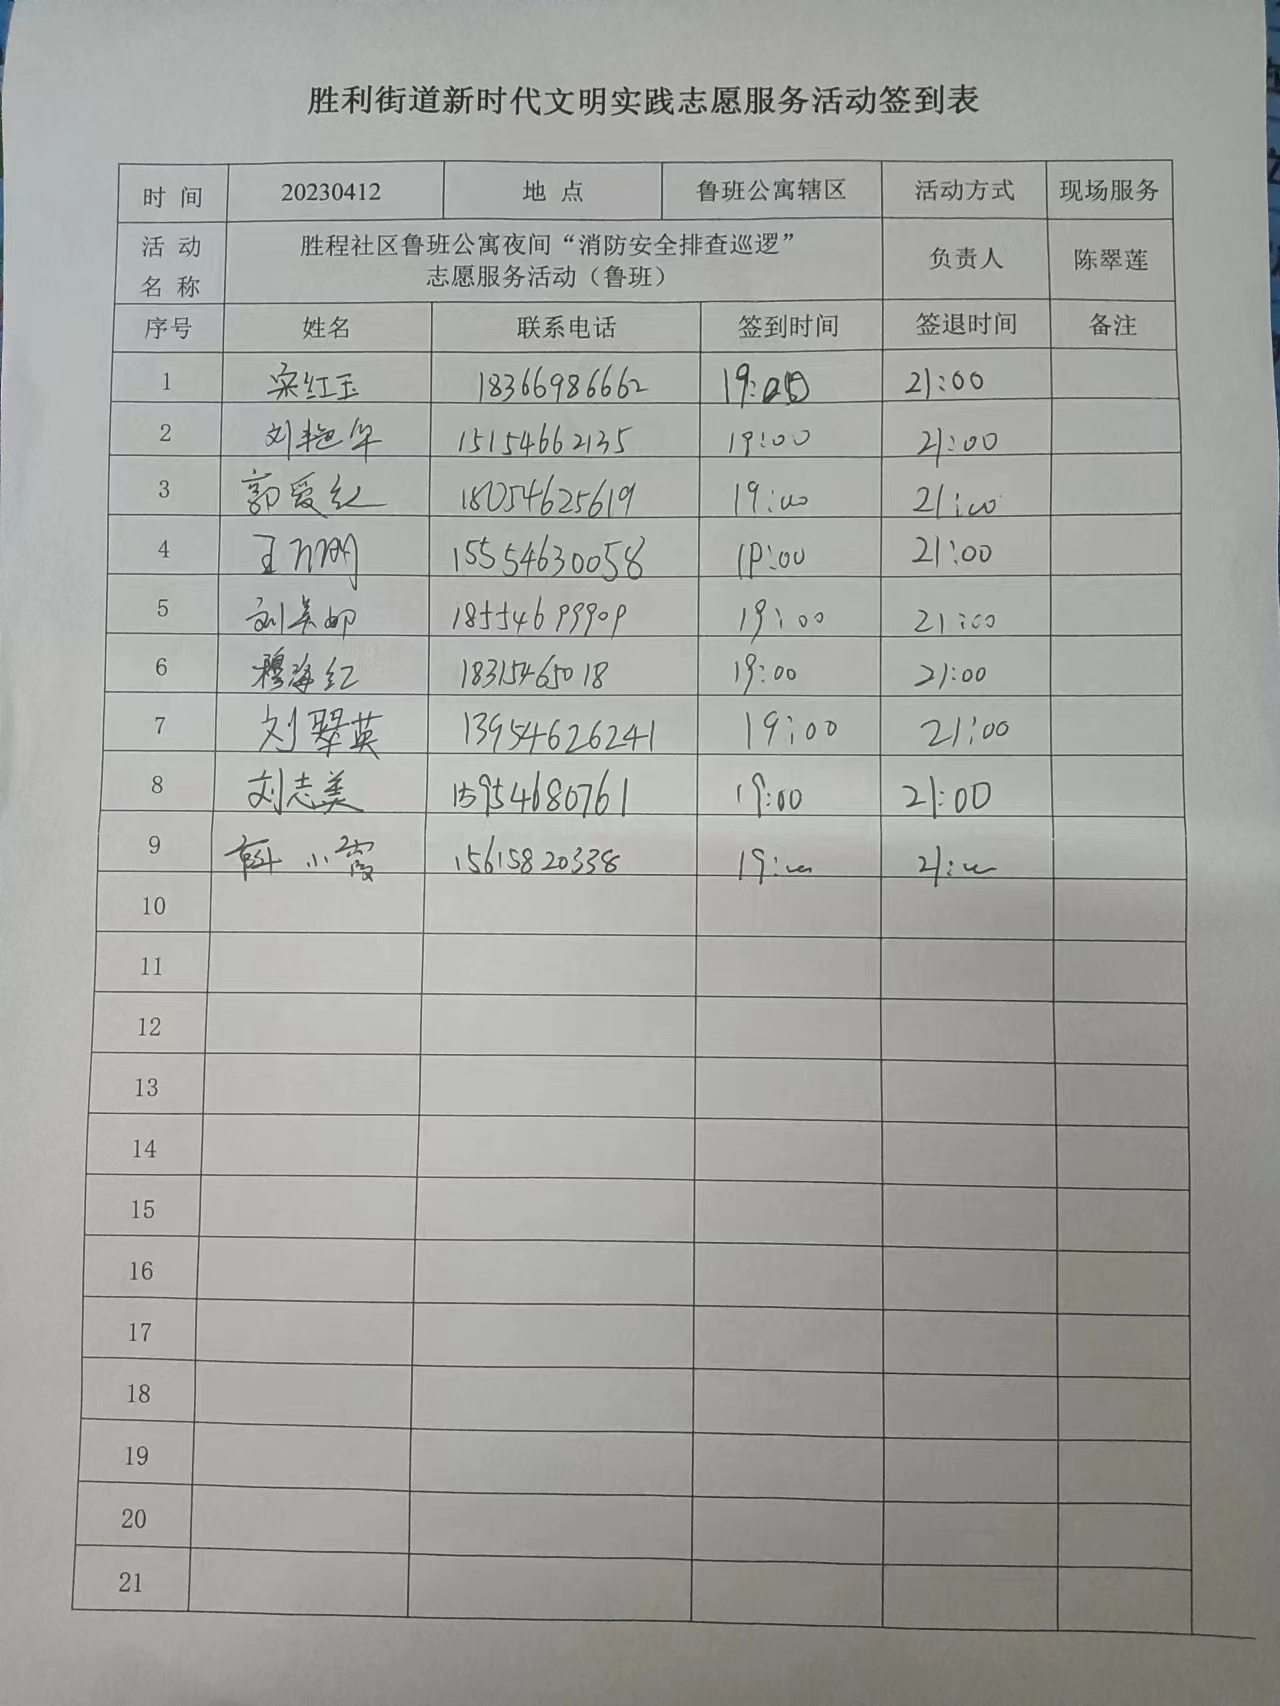 胜利街道新时代文明实践志愿服务活动签到表
时 间 20230412 地 点 鲁班公寓辖区 活动方式 现场服务
活 动 名 称 胜程社区鲁班公寓夜间“消防安全排查巡逻” 负责人 陈翠莲
志愿服务活动（鲁班）
序号 姓名 联系电话 签到时间 签退时间 备注
1 宋红玉 18366986662 19:00 21:00
2 刘艳华 15154662135 19:00 21:00
3 郭爱红 18054625619 19:00 21:00
4 王 15554630058 19:00 21:00
5 刘 18554699909 19:00 21:00
6 穆海红 18315465018 19:00 21:00
7 刘翠英 13954626241 19:00 21:00
8 刘志美 15954680761 19:00 21:00
9 小霞 15615820338 19:00 21:00
10
11
12
13
14
15
16
17
18
19
20
21